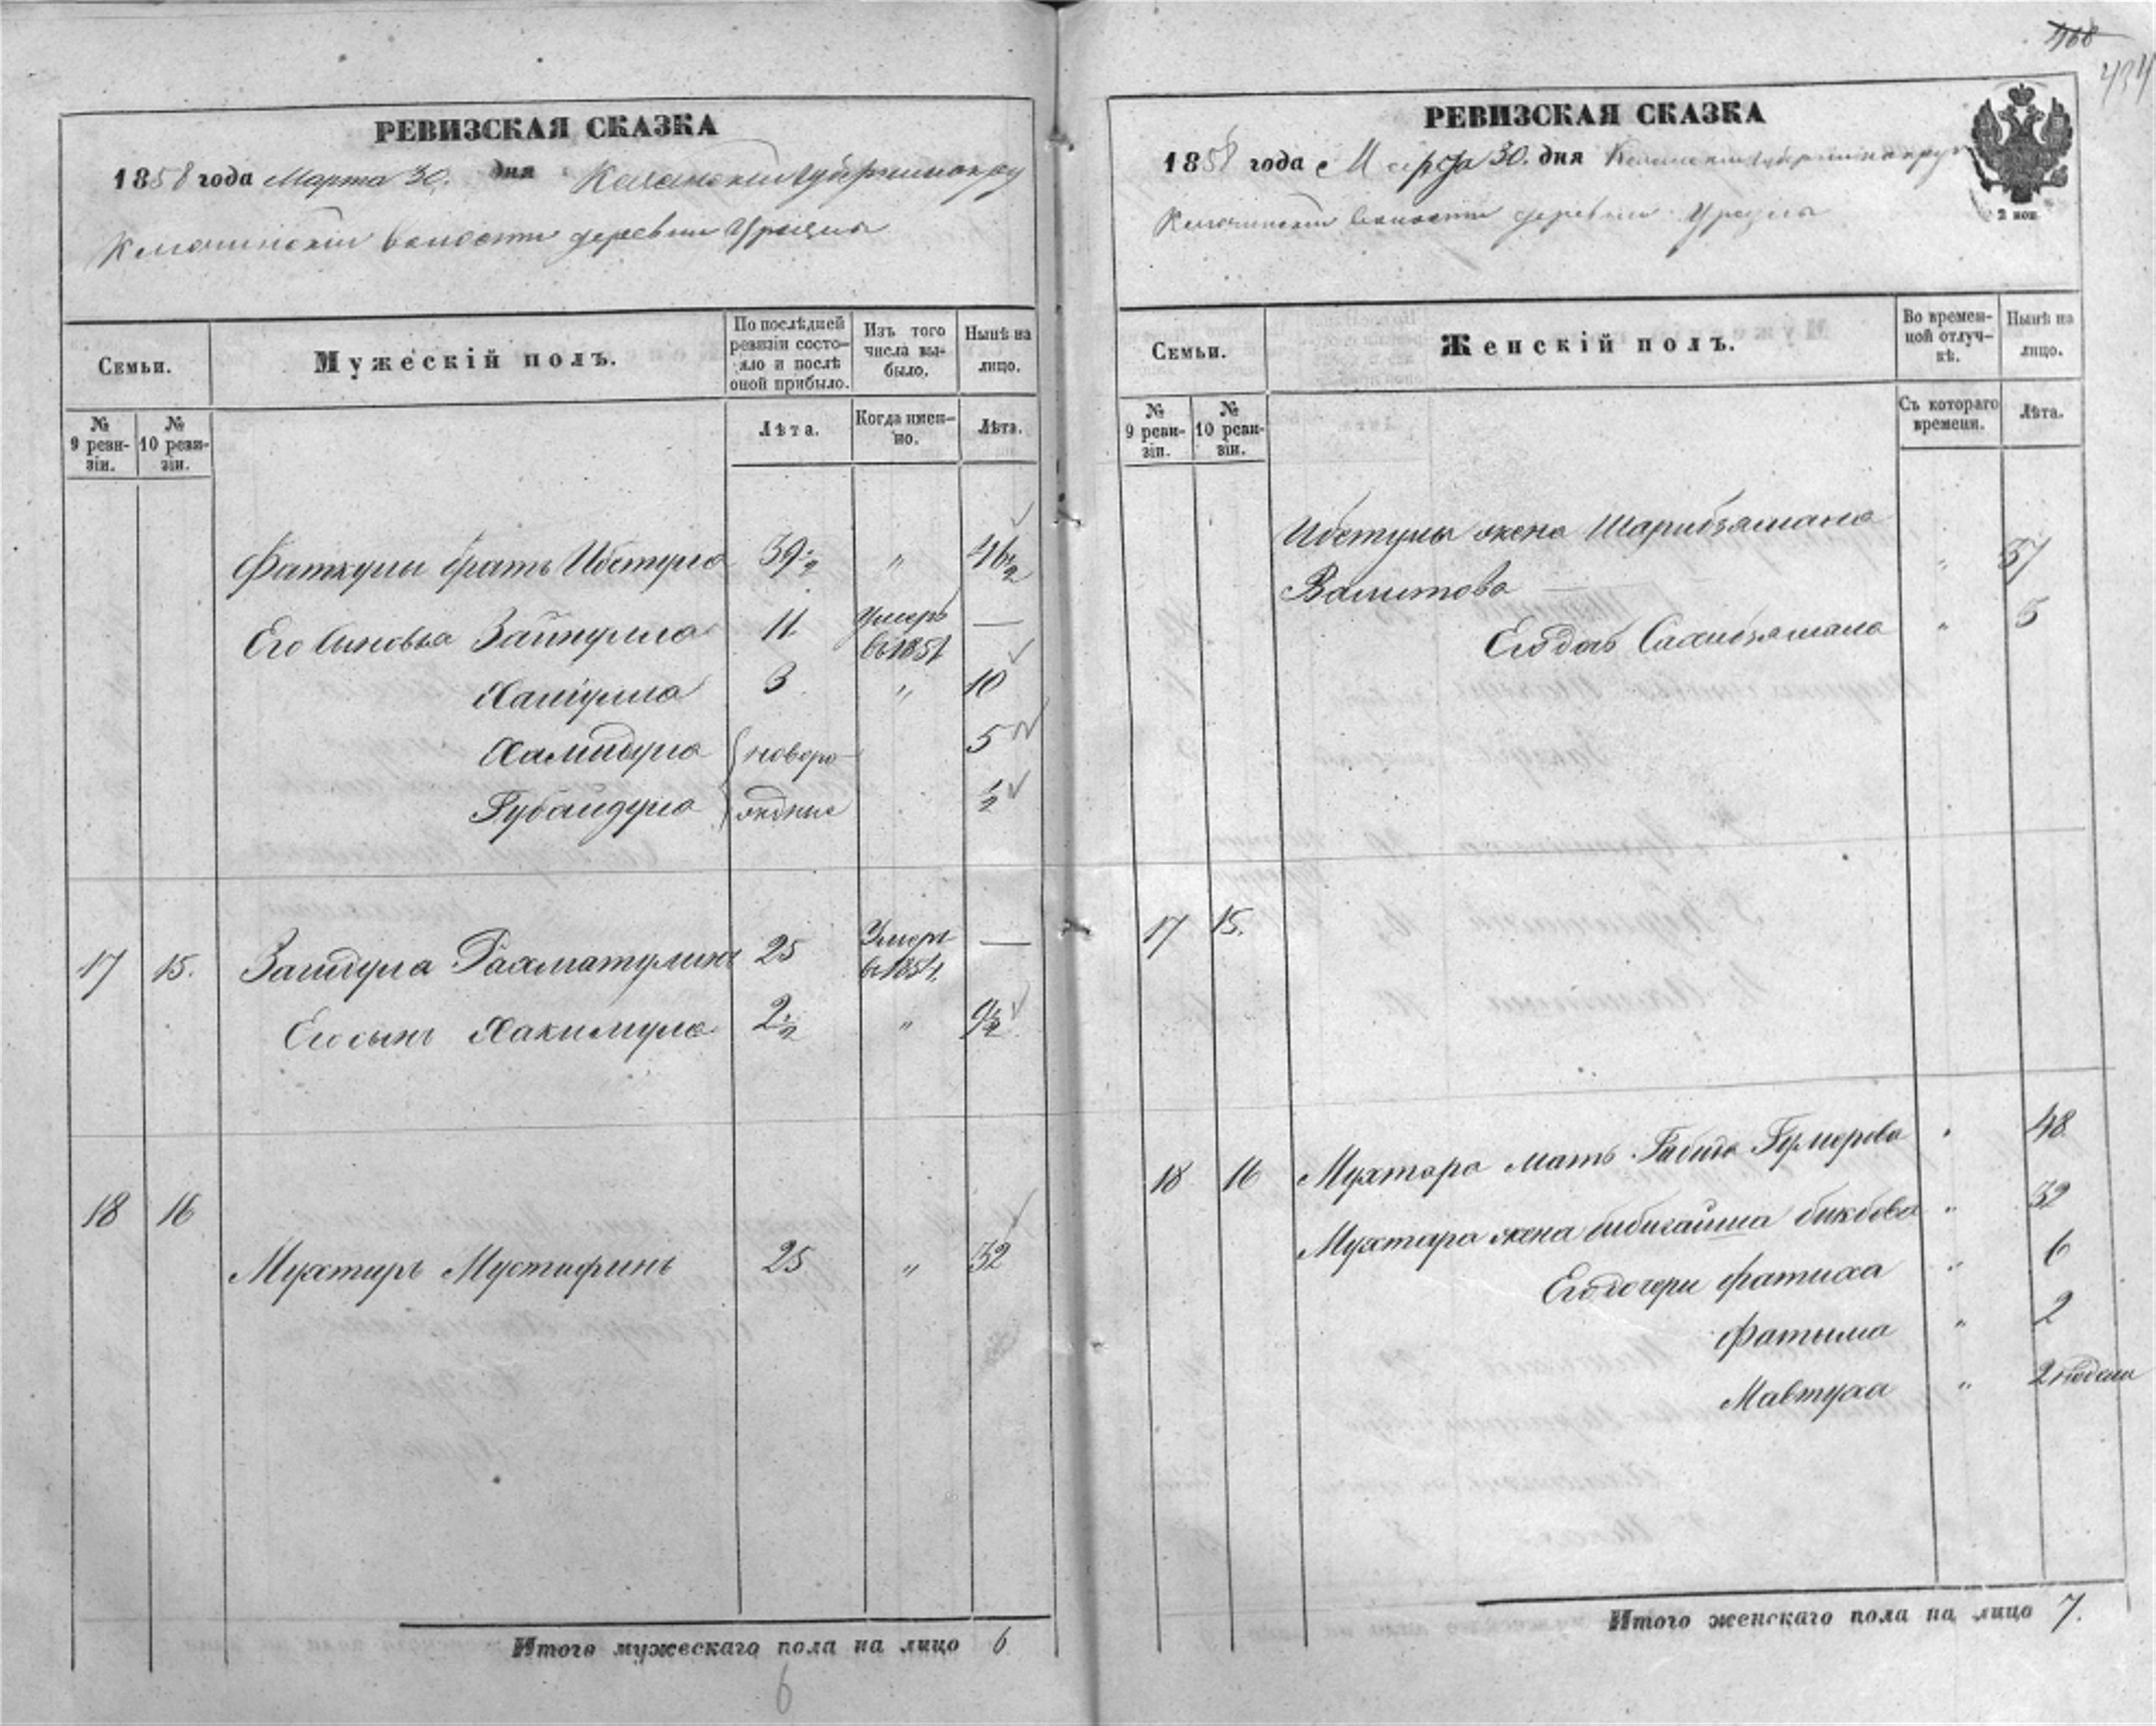 468
434
РЕВИЗСКАЯ СКАЗКА
1858 года Марта 30. дня Казанской губернии
волости деревни
Семьи.
Мужескій полъ.
По послѣдней ревизіи состояло и послѣ оной прибыло.
Изъ того числа выбыло.
Нынѣ на лицо.
№ 9 ревизіи.
№ 10 ревизіи.
Лѣта.
Когда именно.
Лѣта.
Фаткулы братъ Ибетула 39½ " 46½
Его сыновья Зайнулла 11 умеръ въ 1851 —
3 " 10
Хамидула новоро- 5
Губайдула ждные ½
17 15. Рахматулинъ 25 Умеръ въ 1854. —
Его сынъ Хакимула 2½ " 9½
18 16
Мухтаръ Мустафинъ 25 " 32
Итого мужескаго пола на лицо 6
6
РЕВИЗСКАЯ СКАЗКА
1858 года Марта 30. дня Казанской губернии
волости деревни
2 коп.
Семьи.
Женскій полъ.
Во временной отлучкѣ.
Нынѣ на лицо.
№ 9 ревизіи.
№ 10 ревизіи.
Съ котораго времени.
Лѣта.
Ибетулы жена Шарибзямала
Валитова " 37
Его дочь Сахибзямала " 5
17 15.
18 16 Мухтара мать Гумерова " 48
Мухтара жена Бибигайша бикбова " 32
Его дочери фатиха " 6
Фатыма " 2
Мавтуха " 2 недели
Итого женскаго пола на лицо 7.